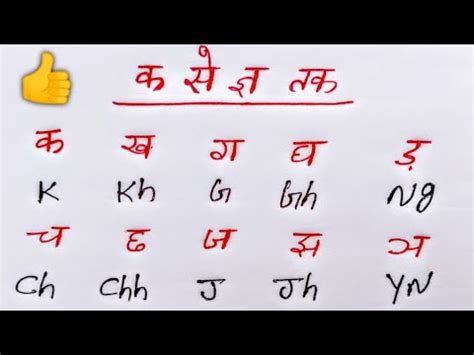 क से ज्ञ तक
क ख ग घ ड़
K Kh G Gh Ng
च छ ज झ ञ
Ch Chh J Jh YN